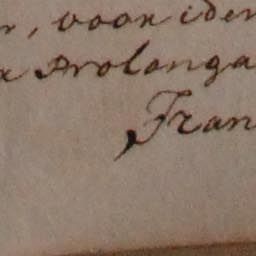 r, voor iden
x Prolonga
Fran